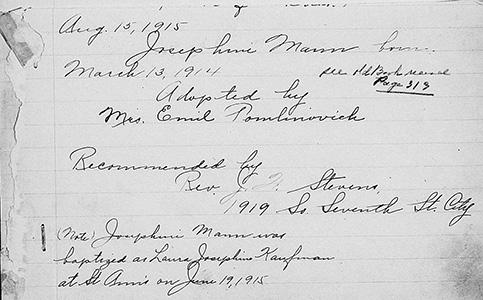 Aug. 15, 1915
Josephine Mann born.
March 13, 1914
see Old Book record
Page 313
Adopted by
Mrs. Emil Tomlinovich
Recommended by
Rev. J. Stevens,
1919 So. Seventh St. City
(Note) Josephine Mann was
baptized as Laura Josephine Kaufman
at St Ann's on June 19, 1915